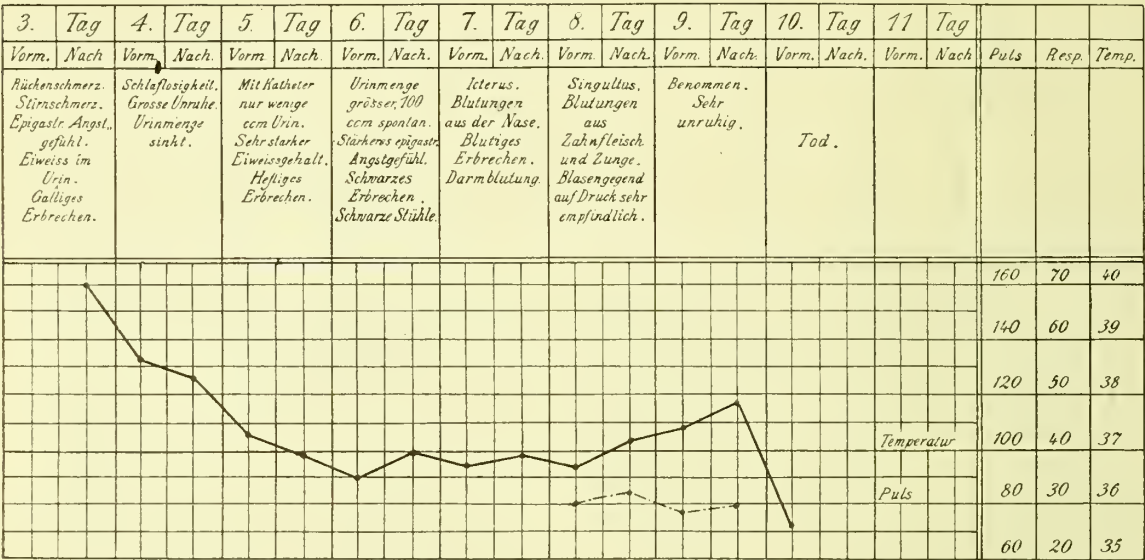 3. Tag 4. Tag 5. Tag 6. Tag 7. Tag 8. Tag 9. Tag 10. Tag 11 Tag
Vorm. Nach Vorm. Nach. Vorm Nach. Vorm. Nach. Vorm. Nach. Vorm. Nach. Vorm. Nach. Vorm. Nach. Vorm. Nach Puls Resp. Temp.
Rückenschmerz.
Stirnschmerz.
Epigastr. Angst„
gefühl.
Eiweiss im
Urin.
Galliges
Erbrechen.
Schlaflosigkeit.
Grosse Unruhe.
Urinmenge
sinkt.
Mit Katheter
nur wenige
ccm Urin.
Sehr starker
Eiweissgehalt.
Heftiges
Erbrechen.
Urinmenge
grösser, 100
ccm spontan.
Stärkeres epigastr.
Angstgefühl.
Schwarzes
Erbrechen.
Schwarze Stühle.
Icterus.
Blutungen
aus der Nase.
Blutiges
Erbrechen.
Darmblutung.
Singultus,
Blutungen
aus
Zahnfleisch
und Zunge.
Blasengegend
auf Druck sehr
empfindlich.
Benommen.
Sehr
unruhig.
Tod.
160 70 40
140 60 39
120 50 38
Temperatur 100 40 37
Puls 80 30 36
60 20 35